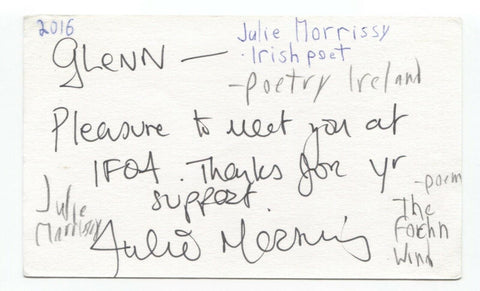 2016
Julie Morrissy
· Irish poet
- poetry Ireland
GLENN —
Pleasure to meet you at
IFOA. Thanks for yr
support.
Julie Morrissy
Julie
Morrissy
- poem
The
Foehn
Wind